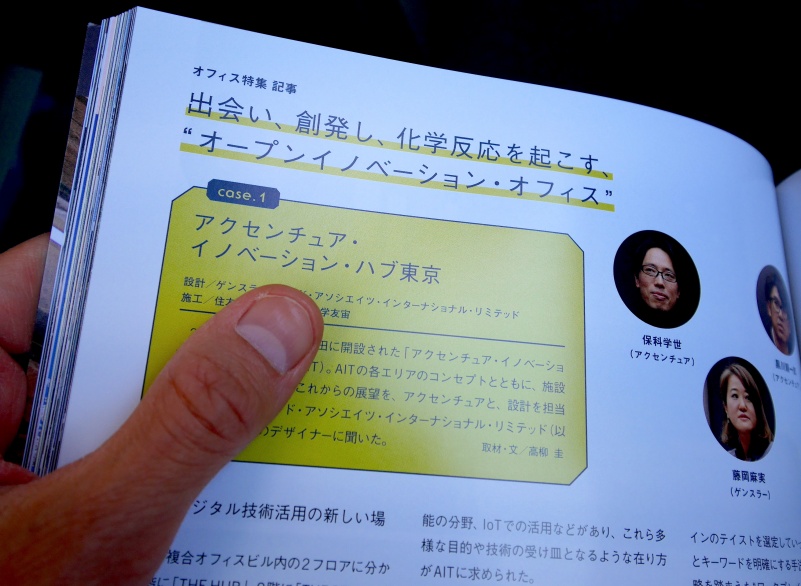 オフィス特集 記事
出会い、創発し、化学反応を起こす、
“オープンイノベーション・オフィス”
case.1
アクセンチュア・
イノベーション・ハブ東京
設計／ゲンスラ ・アソシエイツ・インターナショナル・リミテッド
施工／住 学友宙
田に開設された「アクセンチュア・イノベーショ
T）。AITの各エリアのコンセプトとともに、施設
これからの展望を、アクセンチュアと、設計を担当
ド・アソシエイツ・インターナショナル・リミテッド（以
のデザイナーに聞いた。
取材・文／高柳 圭
保科学世
（アクセンチュア）
藤岡麻実
（ゲンスラー）
ジタル技術活用の新しい場
複合オフィスビル内の2フロアに分か
に「THE HUB」
能の分野、IoTでの活用などがあり、これら多
様な目的や技術の受け皿となるような在り方
がAITに求められた。
インのテイストを選定してい
とキーワードを明確にする手